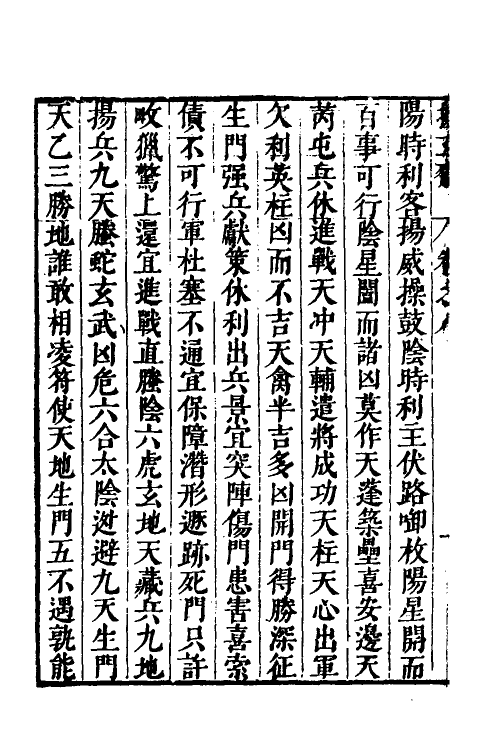 陽時利客揚威操鼓陰時利主伏路啣枚陽星開而
百事可行陰星闔而諸凶莫作天蓬築壘喜安邊天
芮屯兵休進戰天冲天輔遣將成功天柱天心出軍
欠利英柱凶而不吉天禽半吉多凶開門得勝深征
生門强兵獻策休利出兵景宜突陣傷門患害喜索
債不可行軍杜塞不通宜保障潛形遯跡死門只許
畋獵驚上還宜進戰直騰陰六虎玄地天藏兵九地
揚兵九天騰蛇玄武凶危六合太陰逃避九天生門
天乙三勝地誰敢相凌符使天地生門五不遇孰能